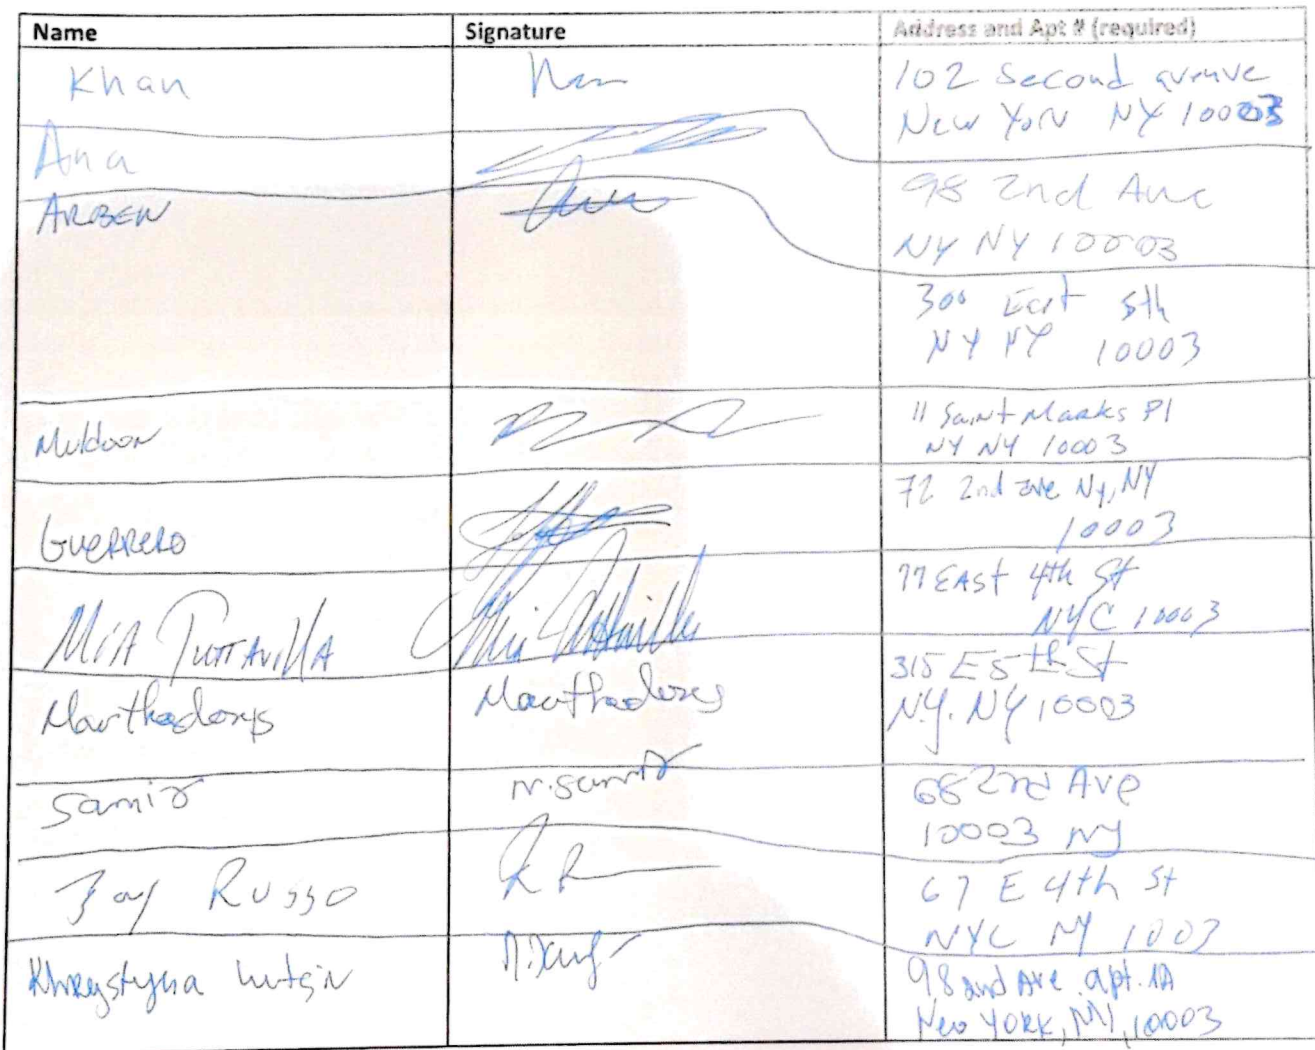 Name Signature Address and Apt # (required)
Khan
102 Second avenue
New York NY 10003
Ana
98 2nd Ave
NY NY 10003
ARBEN
300 East 5th
NY NY 10003
Muldoon
11 Saint Marks Pl
NY NY 10003
Guerrero
72 2nd ave Ny, NY
10003
MIA TUTTAVILLA
77 EAST 4th St
NYC 10003
Marthadorys Marthadorys
315 E 5th St
N.Y. NY 10003
Samir N.Samir
68 2nd Ave
10003 NY
Jay Russo
67 E 4th St
NYC NY 1003
Khrystyna
98 2nd Ave. apt. 1A
New YORK, NY, 10003